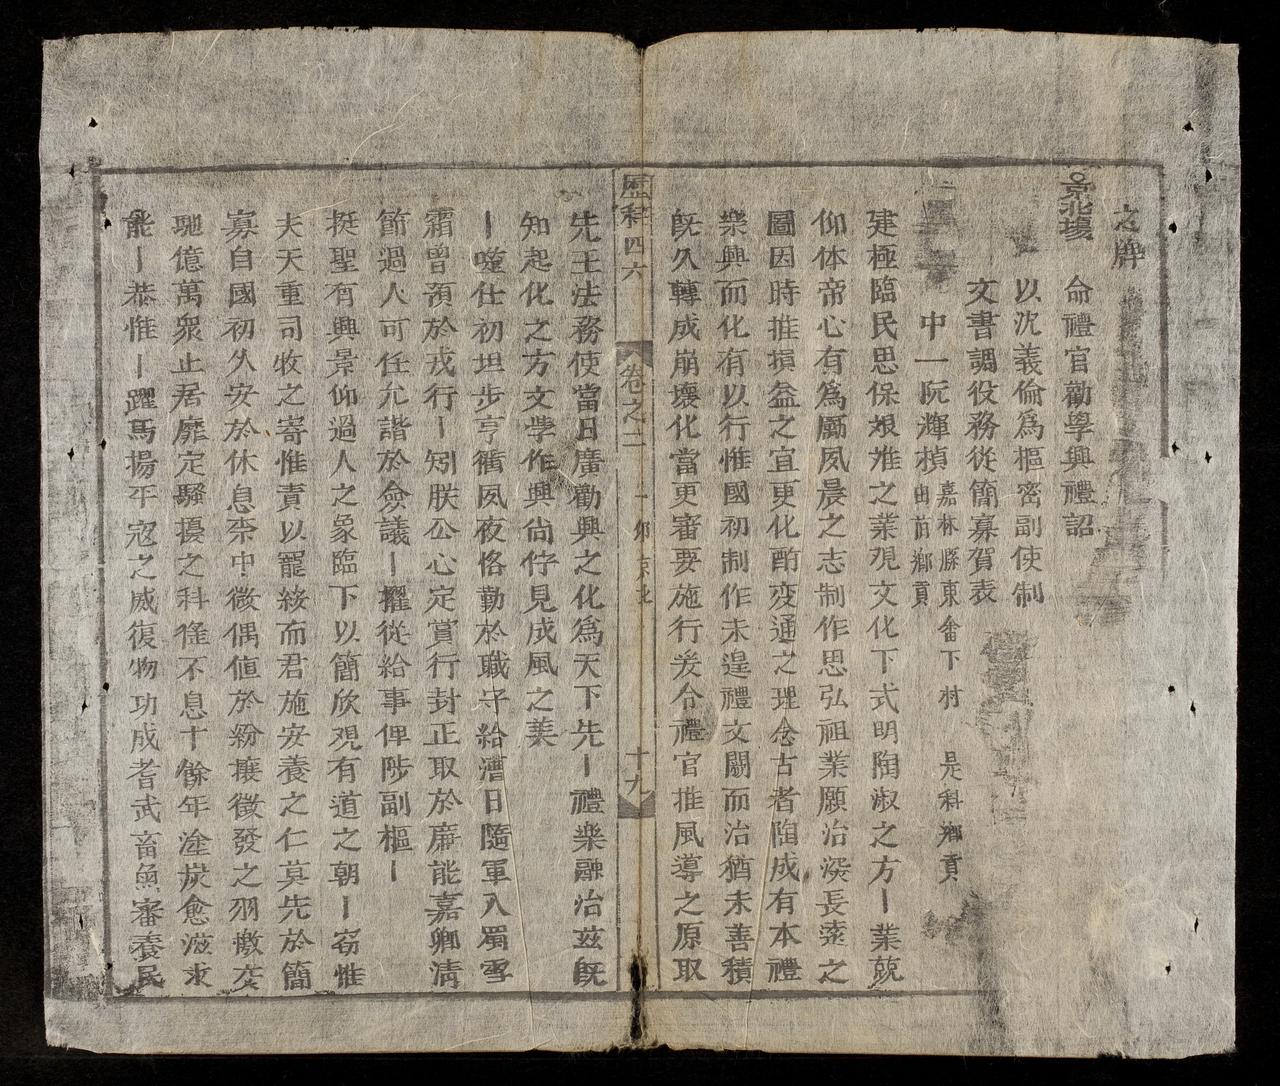 之牌
京北場
命禮官勸學興禮詔
以沈義倫爲樞密副使制
文書調役務從簡寡賀表
中一阮輝楨 嘉林縣東畬下村 是科鄉貢
由前鄉貢
建極臨民思保艱難之業観文化下式明陶淑之方〡業兢
仰体帝心有爲勵夙晨之志制作思弘祖業願治深長遠之
圖因時推損益之宜更化酌変通之理念古者陶成有本禮
樂興而化有以行惟國初制作未遑禮文闕而治猶未善積
旣久轉成崩壞化當更審要施行爰令禮官推風導之原取
歷科四六 卷之二 一鄉京北 十九
先王法務使當日廣勸興之化爲天下先〡禮樂融治茲旣
知起化之方文學作興尚佇見成風之美
〡噬仕初坦步亨衢夙夜恪勤於職守給漕日隨軍入蜀雪
霜曽預於戎行〡矧朕公心定賞行封正取於廉能嘉卿清
節過人可任允諧於僉議〡擢從給事俾陟副樞〡
挺聖有興景仰過人之象臨下以簡欣観有道之朝〡窃惟
夫天重司牧之寄惟責以寵綏而君施安養之仁莫先於簡
寡自國初久安於休息柰中微偶値於紛攘徵發之羽檄交
馳億萬衆止居靡定騷擾之科徭不息十餘年塗炭愈滋求
能〡恭惟〡躍馬揚平寇之威復物功成者武畜魚審養民